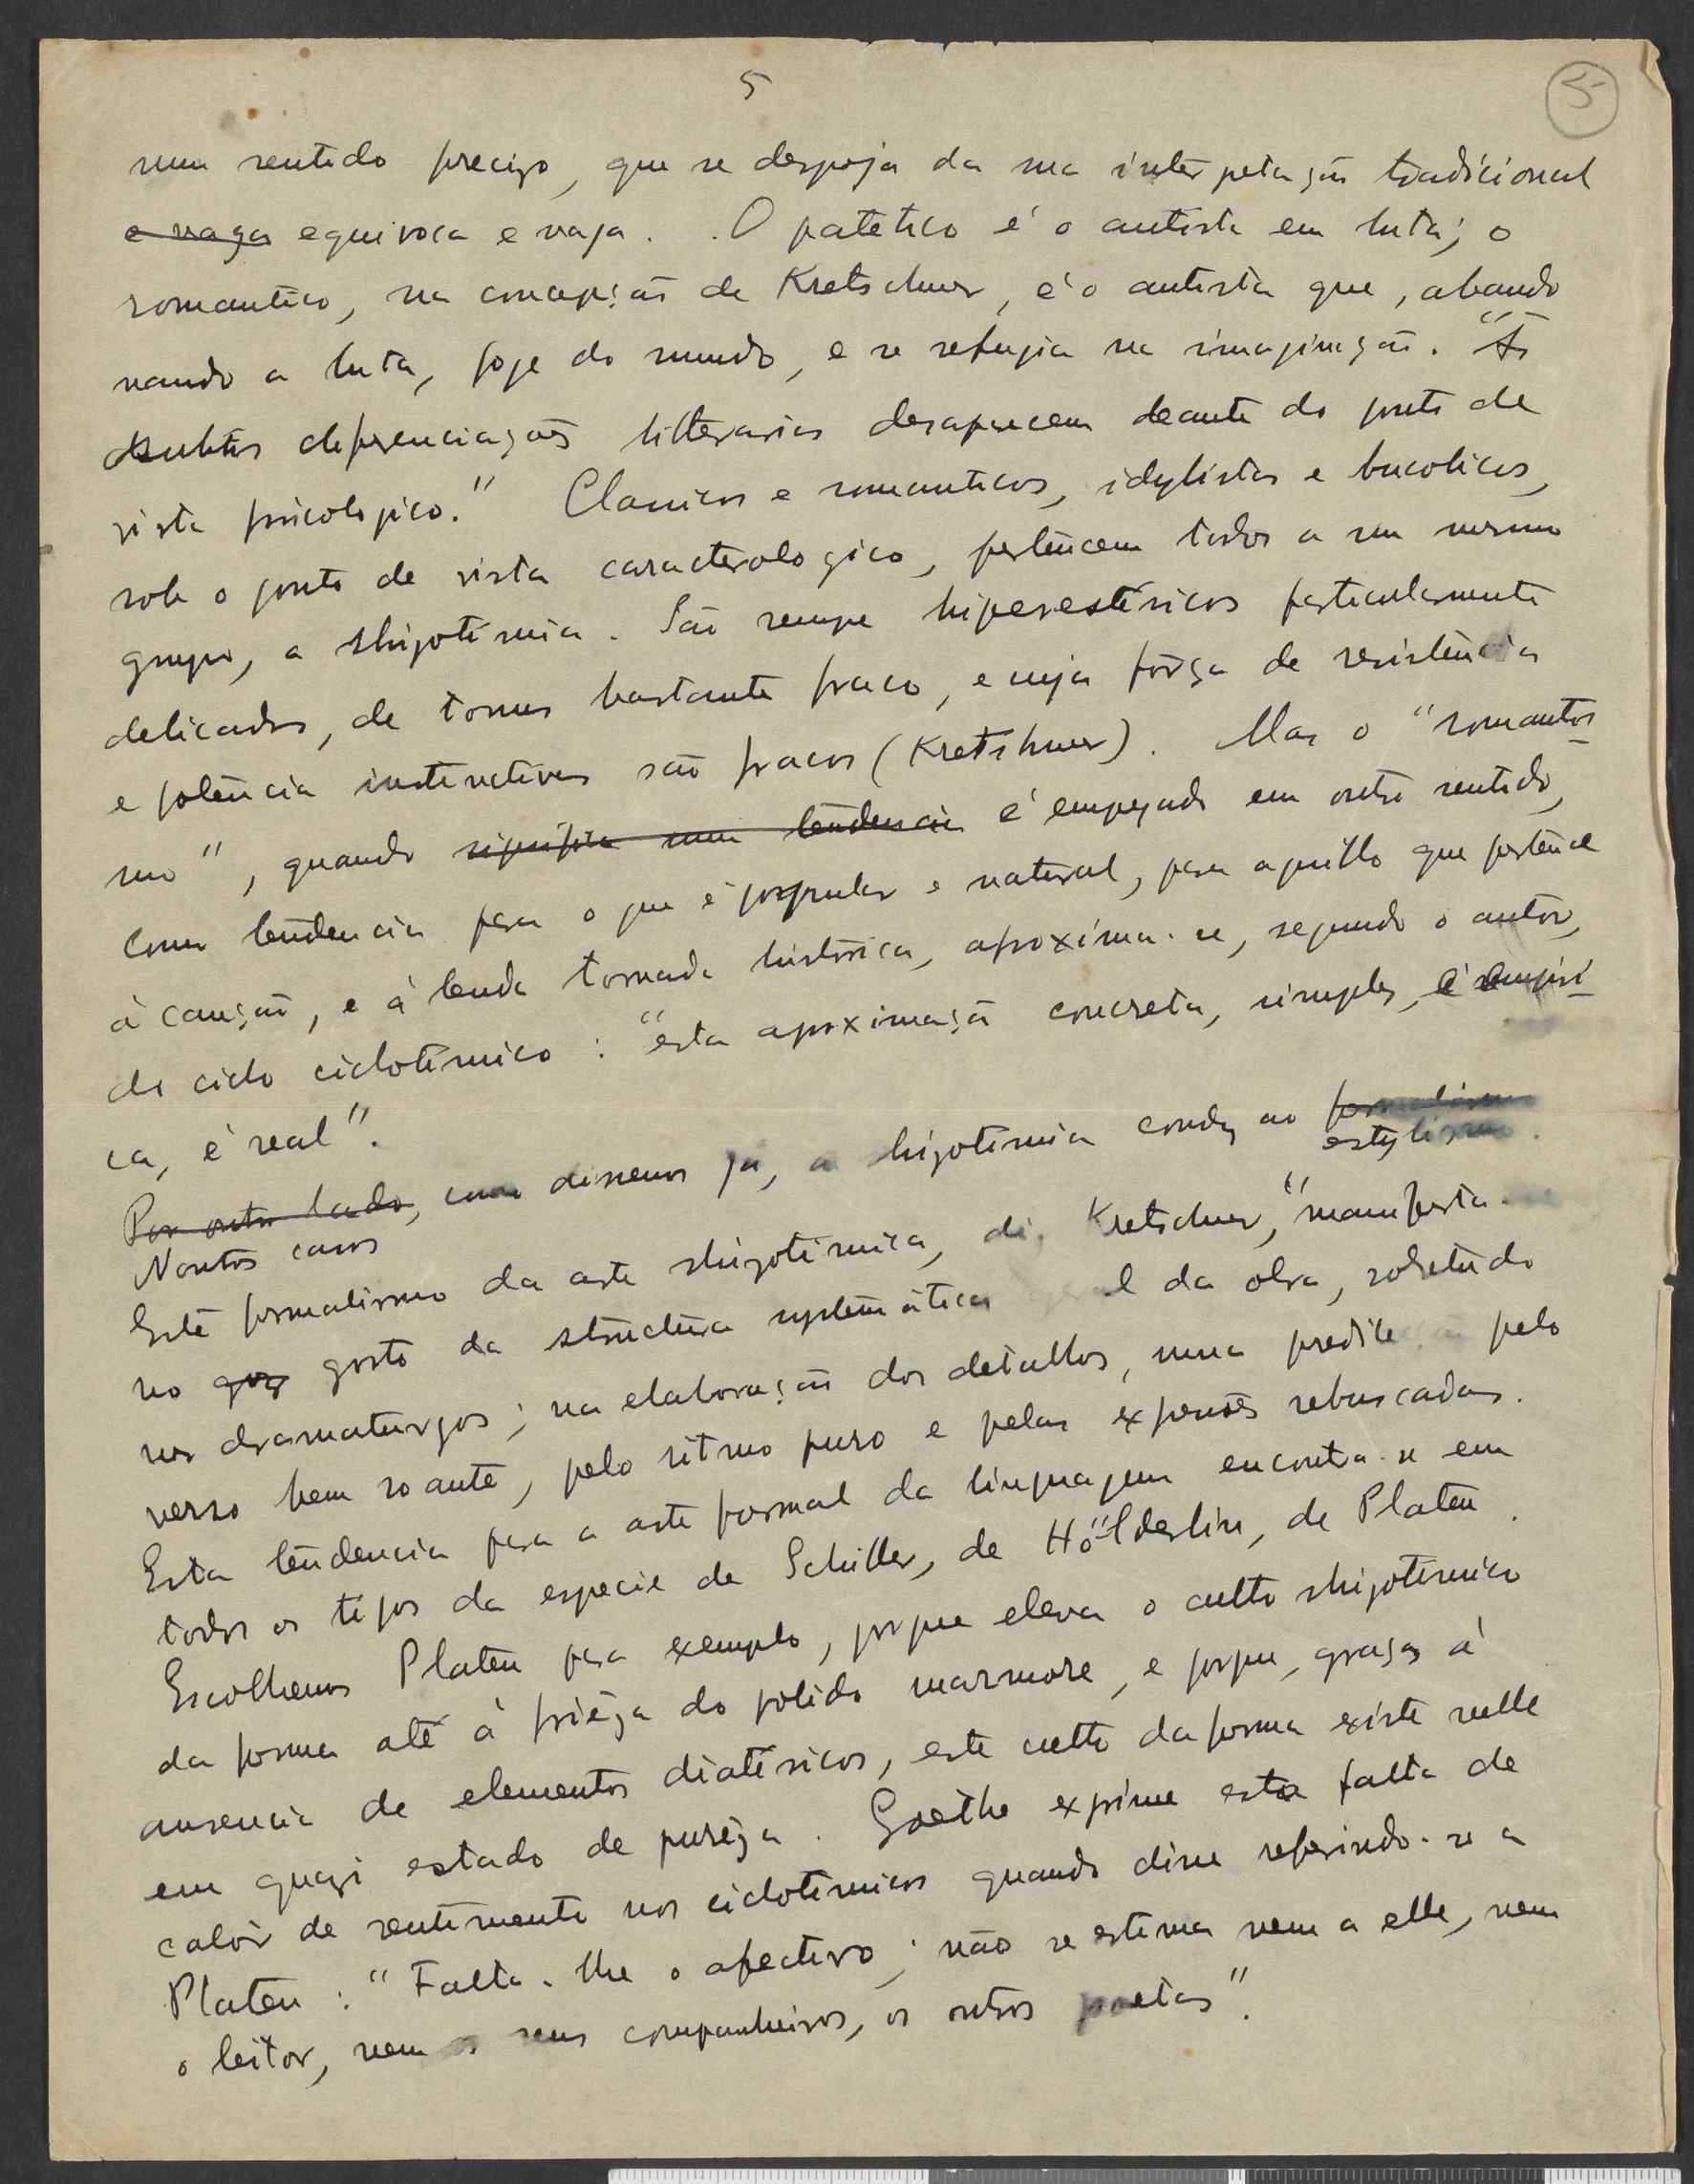 5
5
num sentido precizo, que se despoja da sua interpetação tradicional
e vaga equivoca e vaga. O patetico é o autista em luta; o
romantico, na concepção de Kretschmer, é o autista que, abando
nando a luta, foge do mundo, e se refugia na imaginação. "As
subtis diferenciações litterarias desaparecem deante do ponto de
vista psicologico." Classicos e romanticos, idylistas e bucolicos,
sob o ponto de vista caracterologico, pertencem todos a um mesmo
grupo, a shizotimia. São sempre hiperestésicos particularmente
delicados, de tonus bastante fraco, e cuja força de resistência
e potência instinctivas são fracos (Kretshmer). Mas o "romantis
mo", quando significa uma tendencia é empregado em outro sentido,
como tendencia para o que é popular e natural, para aquillo que pertence
à canção, e à lenda tornada histórica, aproxima-se, segundo o autor,
do ciclo ciclotímico: "esta aproximação concreta, simples, é empiri
ca, é real".
Por outro lado, como dissemos já, a shizotimia conduz ao formalismo
estylismo.
Noutros casos
Este formalismo da arte shizotimica, diz Kretschmer, "manifesta-se
no goz gosto da structura systemática geral da obra, sobretudo
nos dramaturgos; na elaboração dos detalhes, numa predileção pelo
verso bem soante, pelo ritmo puro e pelas expressões rebuscadas.
Esta tendencia para a arte formal da linguagem encontra-se em
todos os tipos da especie de Schiller, de Hölderlin, de Platen.
Escolhemos Platen para exemplo, porque eleva o culto shizotimico
da forma até à frieza do polido marmore, e porque, graças à
ausencia de elementos diatésicos, este culto da forma existe nelle
em quazi estado de pureza. Goethe exprime esta falta de
calor de sentimento nos ciclotimicos quando disse referindo-se a
Platen: "Falta-lhe o afectivo; não se estima nem a elle, nem
o leitor, nem os seus companheiros, os outros poetas".